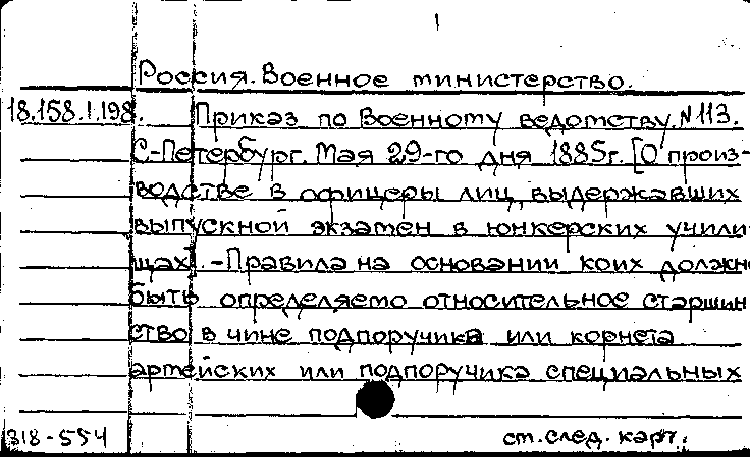 1
Россия. Военное министерство.
18.158.1.198. Приказ по Военному ведомству. N 113.
С-Петербург. Мая 29-го дня 1885г. [О произ-
водстве в офицеры лиц, выдержавших
выпускной экзамен в юнкерских учили
щах]. - Правила на основании коих должн
быть определяемо относительное старшин
ство в чине подпоручика или корнета
артейских или подпоручика специальных
318-554 ст. след. карт.